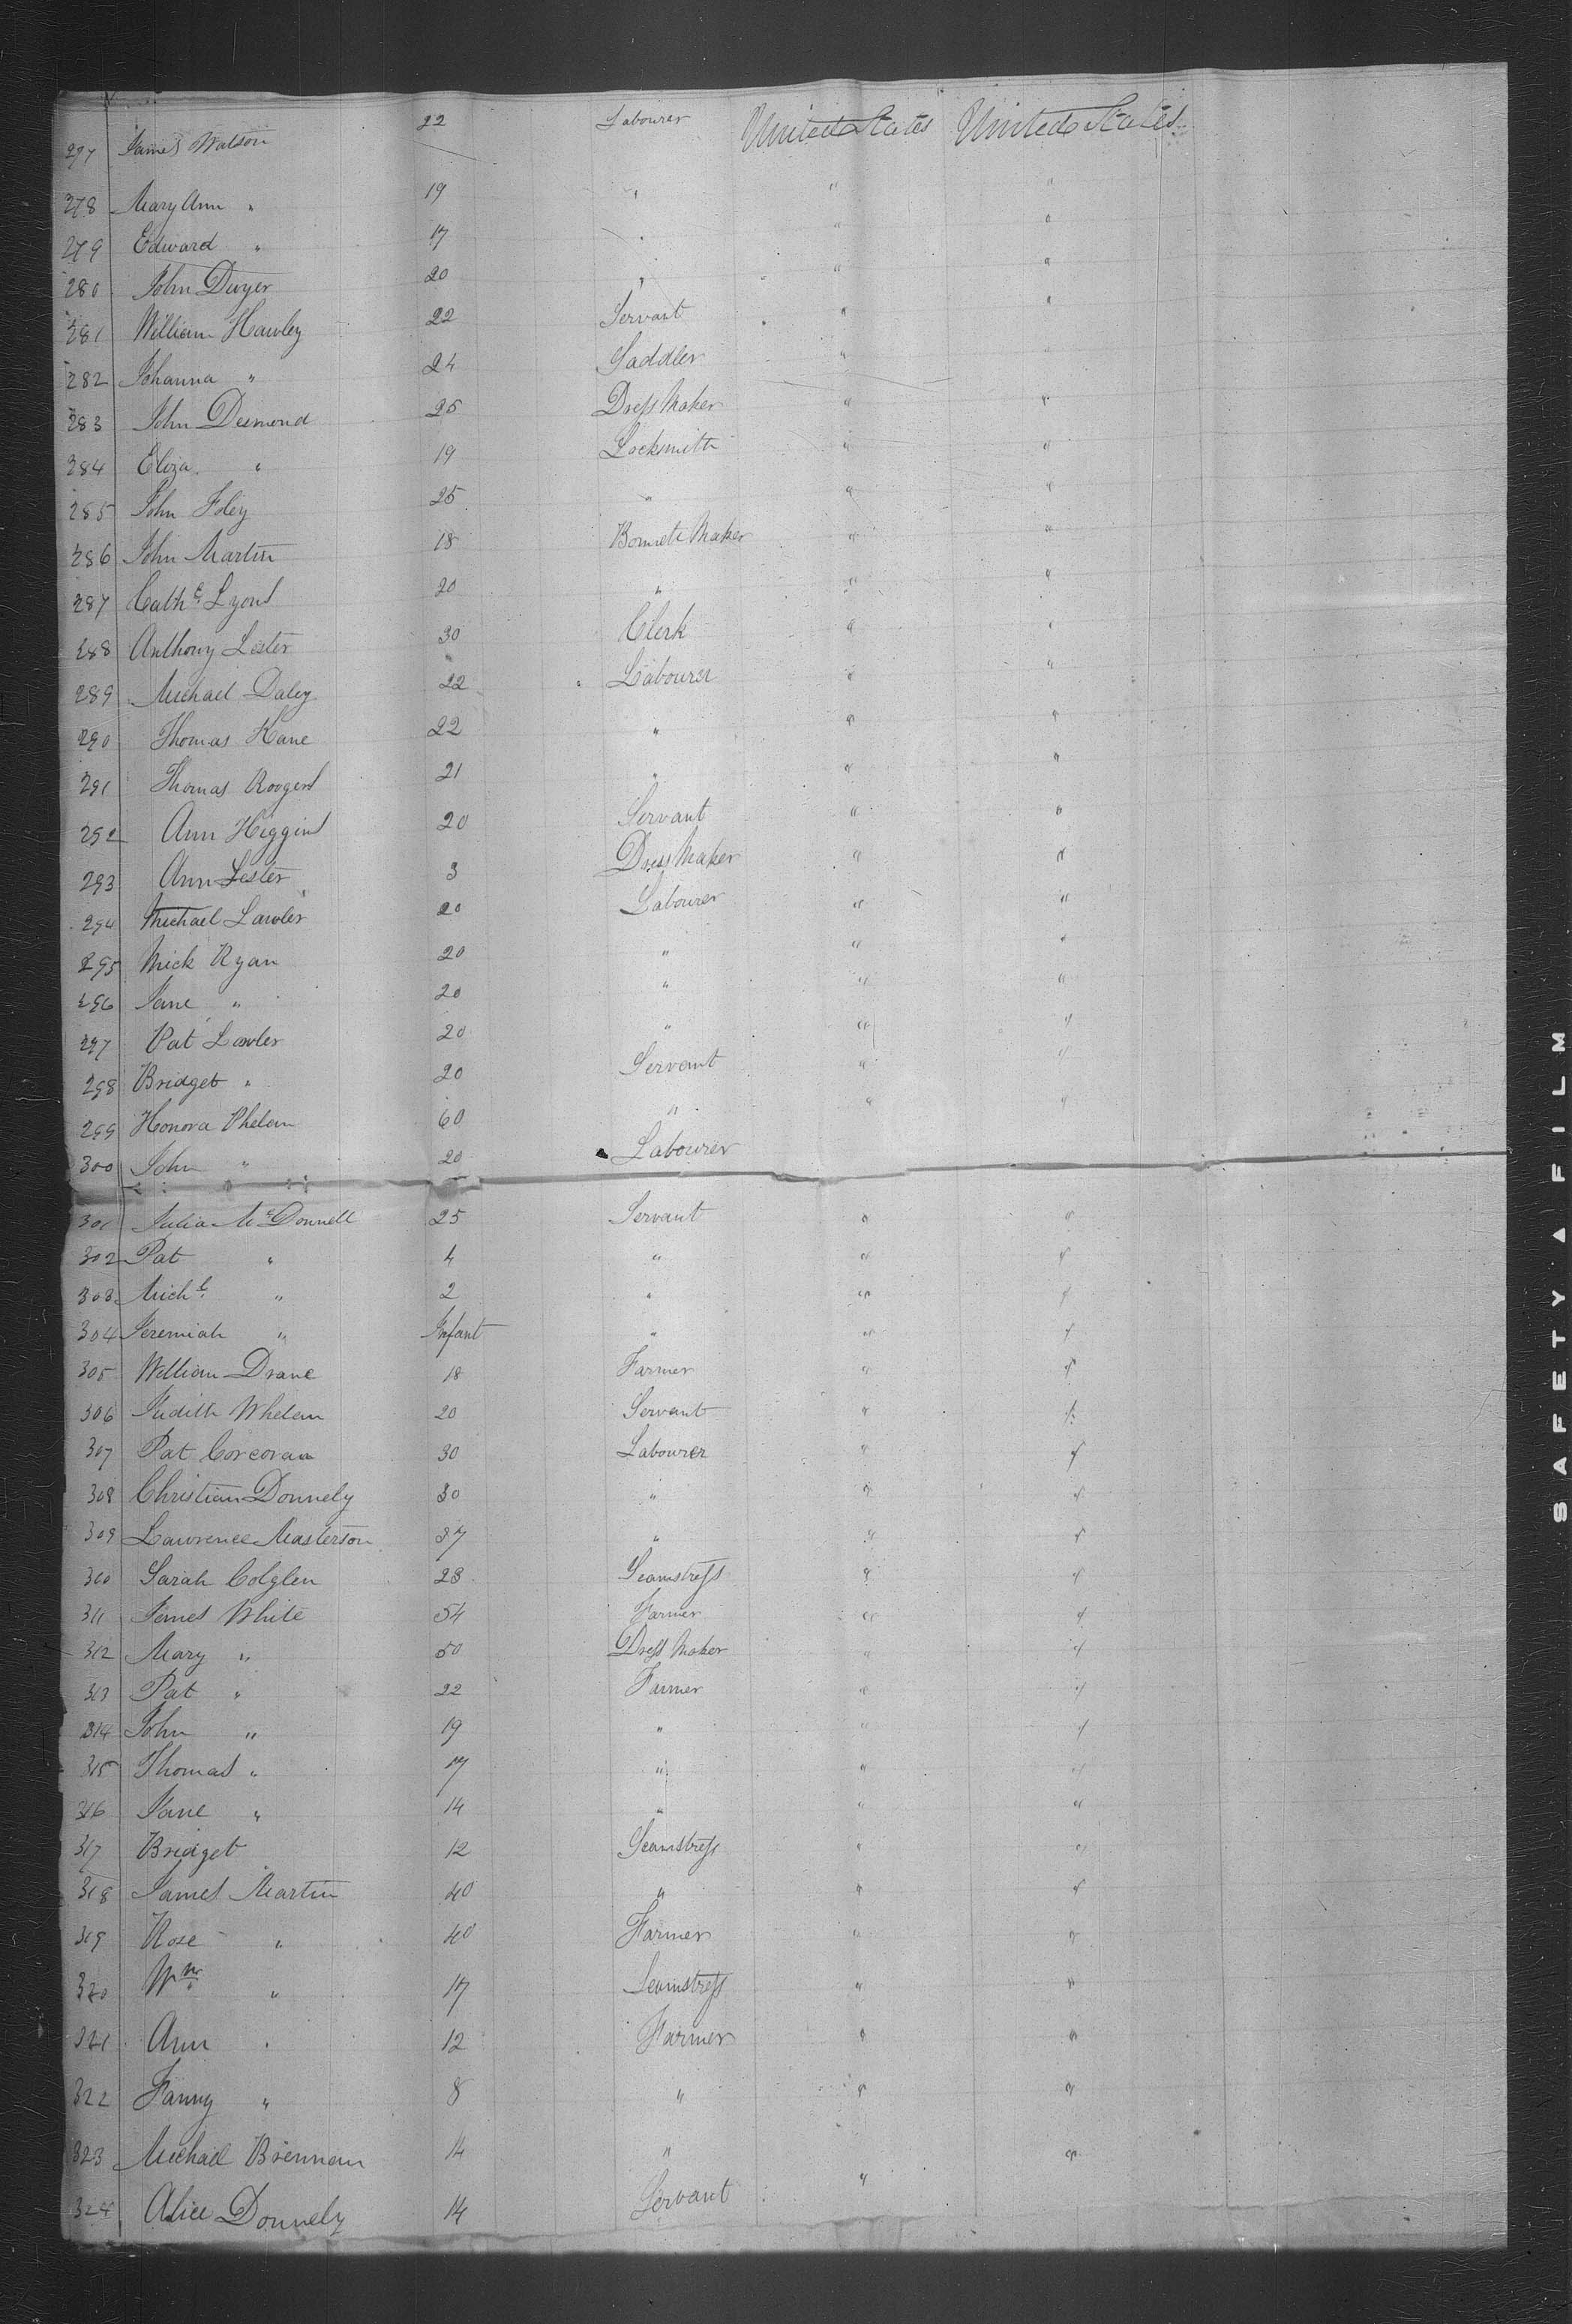 277 James Watson 22 Labourer United States United States
278 Mary Ann " 19 " " "
279 Edward " 17 " " "
280 John Dwyer 20 " " "
281 William Hawley 22 Servant " "
282 Johanna " 24 Saddler "
283 John Desmond 25 Dress Maker " "
284 Eliza " 19 Locksmith " "
285 John Foley 25 " " "
286 John Martin 18 Bonnett Maker " "
287 Cathe Lyons 20 " " "
288 Anthony Lester 30 Clerk " "
289 Michael Daley 22 Labourer " "
290 Thomas Kane 22 " " "
291 Thomas Roogers 21 " " "
292 Ann Higgins 20 Servant " "
293 Ann Lester 3 Dress Maker " "
294 Michael Lawler 20 Labourer " "
295 Mick Ryan 20 " " "
296 Jane " 20 " " "
297 Pat Lawler 20 " " "
298 Bridget " 20 Servant " "
299 Honora Phelan 60 " " "
300 John " 20 Labourer
301 Julia McDonnell 25 Servant " "
302 Pat " 4 " " "
303 Michl " 2 " " "
304 Jeremiah " Infant " " "
305 William Drane 18 Farmer " "
306 Judith Whelan 20 Servant " "
307 Pat Corcoran 30 Labourer " "
308 Christian Donnely 30 " " "
309 Lawrence Masterson 37 " " "
310 Sarah Colglen 28 Seamstress " "
311 James White 54 Farmer " "
312 Mary " 50 Dress Maker " "
313 Pat " 22 Farmer " "
314 John " 19 " " "
315 Thomas " 17 " " "
316 Jane " 14 " " "
317 Bridget 12 Seamstress " "
318 James Martin 40 " " "
319 Rose " 40 Farmer " "
320 Wm " 17 Seamstress " "
321 Ann " 12 Farmer " "
322 Fanny " 8 " " "
323 Michael Brennan 14 " " "
324 Alice Donnely 14 Servant
SAFETY ▲ FILM